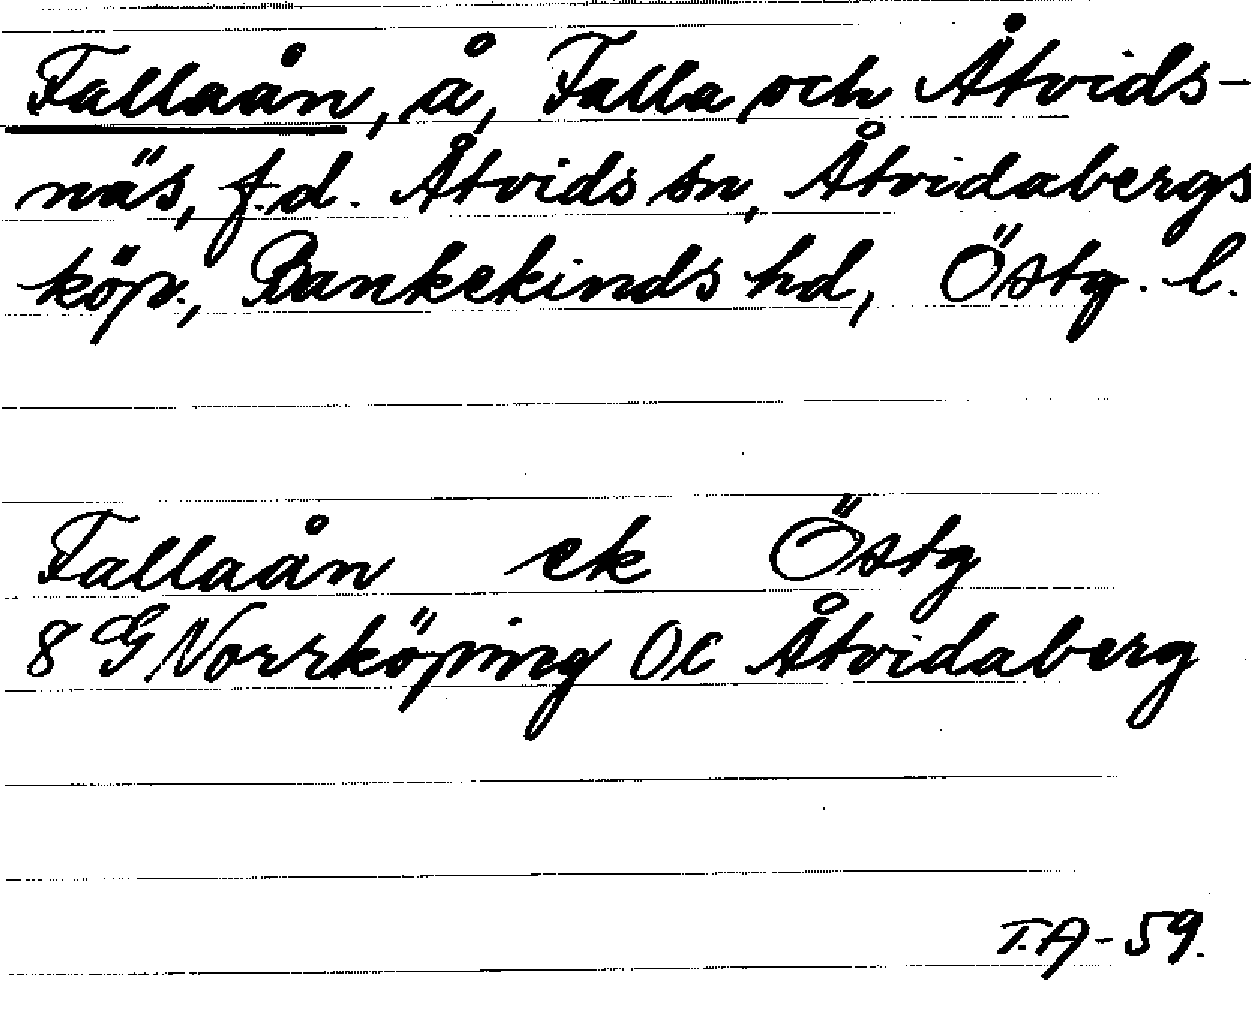 Fallaån, å, Falla och Åtvids-
näs, f.d. Åtvids sn, Åtvidabergs
köp., Bankekinds hd, Östg. l.
Fallaån ek Östg
8 G Norrköping Oc Åtvidaberg
T.A-59.